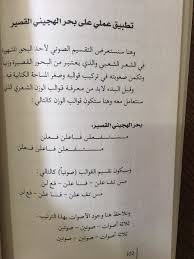 تطبيق عملي على بحر الهجيني القصير
وهنا سنستعرض التقسيم الصوتي لأحد البحور المشهورة
في الشعر الشعبي والذي يعتبر من البحور القصيرة وزناً
وتكمن صعوبته في تركيب قوالبه وصغر المساحة الكتابية فيه.
وقبل البدء لابد من معرفة قوالب الوزن الشعري الذي
سنتعامل معه وهنا ستكون قوالب الوزن كالتالي:
بحر الهجيني القصير:
مستفعلن فاعلن فعلن
مستفعلن فاعلن فعلن
وسيكون تقسيم القوالب (صوتياً) كالتالي:
مس تف علن - فا علن - فع لن
مس تف علن - فا علن - فع لن
ونلاحظ هنا وجود الأصوات بهذا الترتيب:
ثلاثة أصوات - صوتين - صوتين
ثلاثة أصوات - صوتين - صوتين
102